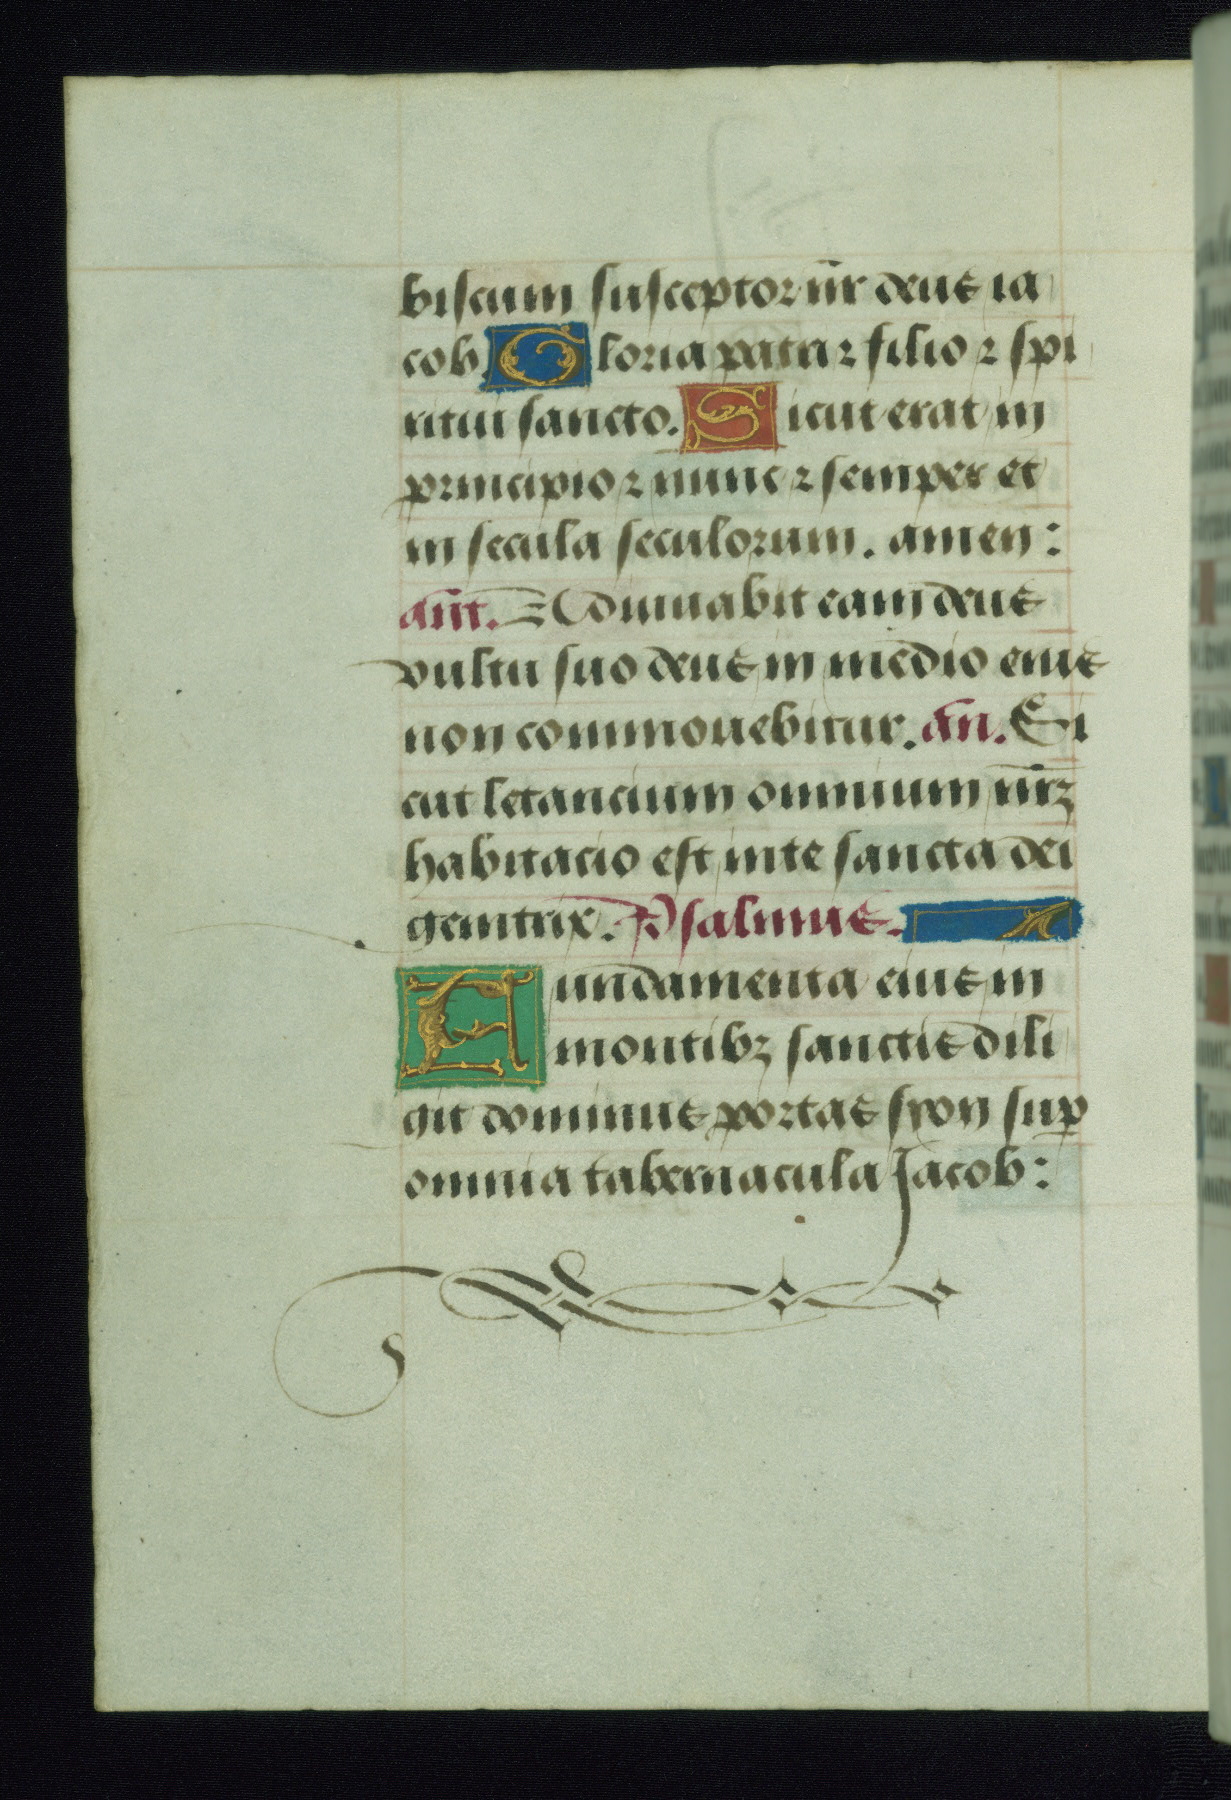 biscum susceptor nr̄ deus ia
cob. Gloria patri ⁊ filio ⁊ spi
ritui sancto. Sicut erat in
principio ⁊ nunc ⁊ semper et
in secula seculorum. amen:
an̄t. Adiuuabit eam deus
vultu suo deus in medio eius
non commouebitur. an̄. Si
cut letancium omnium nr̄ꝫ
habitacio est in te sancta dei
genitrix. Psalmus.
Fundamenta eius in
montibꝫ sanctis dili
git dominus portas syon sup̱
omnia tabernacula Jacob: